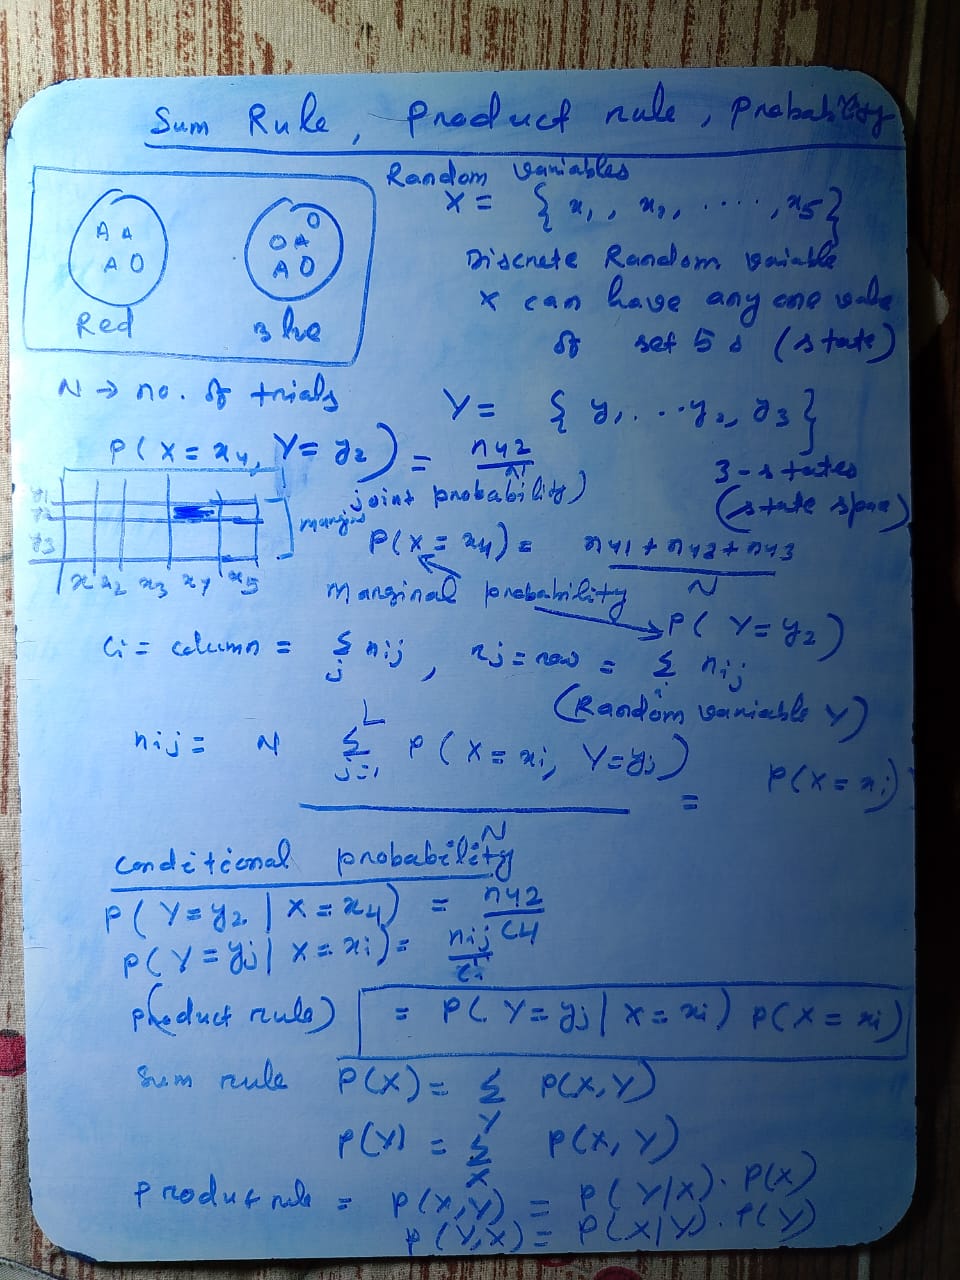 Sum Rule, Product rule, Probability
Random variables
X = { x1, x2, ....., x5}
A A
A O
Red
O
O A
A O
Blue
Discrete Random variable
X can have any one value
of set 5 s (state)
N → no. of trials
Y = { y1...y2, y3}
3-states
(state space)
P(X = x4, Y = y2) = n42/N
joint probability)
y1
y2
y3
x x2 x3 x4 x5
P(X = x4) = n41 + n42 + n43 / N
marginal probability
P(Y = y2)
Ci = column = Σj nij, rj = row = Σi nij
(Random variable Y)
nij = N Σ j=1 L P(X = xi, Y = yj) = P(X = xi)
N
Conditional probability
P(Y = y2 | X = x4) = n42/C4
P(Y = yj | X = xi) = nij/ci
(Product rule) = P(Y = yj | X = xi) P(X = xi)
Sum rule P(X) = Σ Y P(X,Y)
P(Y) = Σ X P(X, Y)
Product rule = P(X,Y) = P(Y|X). P(X)
P(Y,X) = P(X|Y). P(Y)